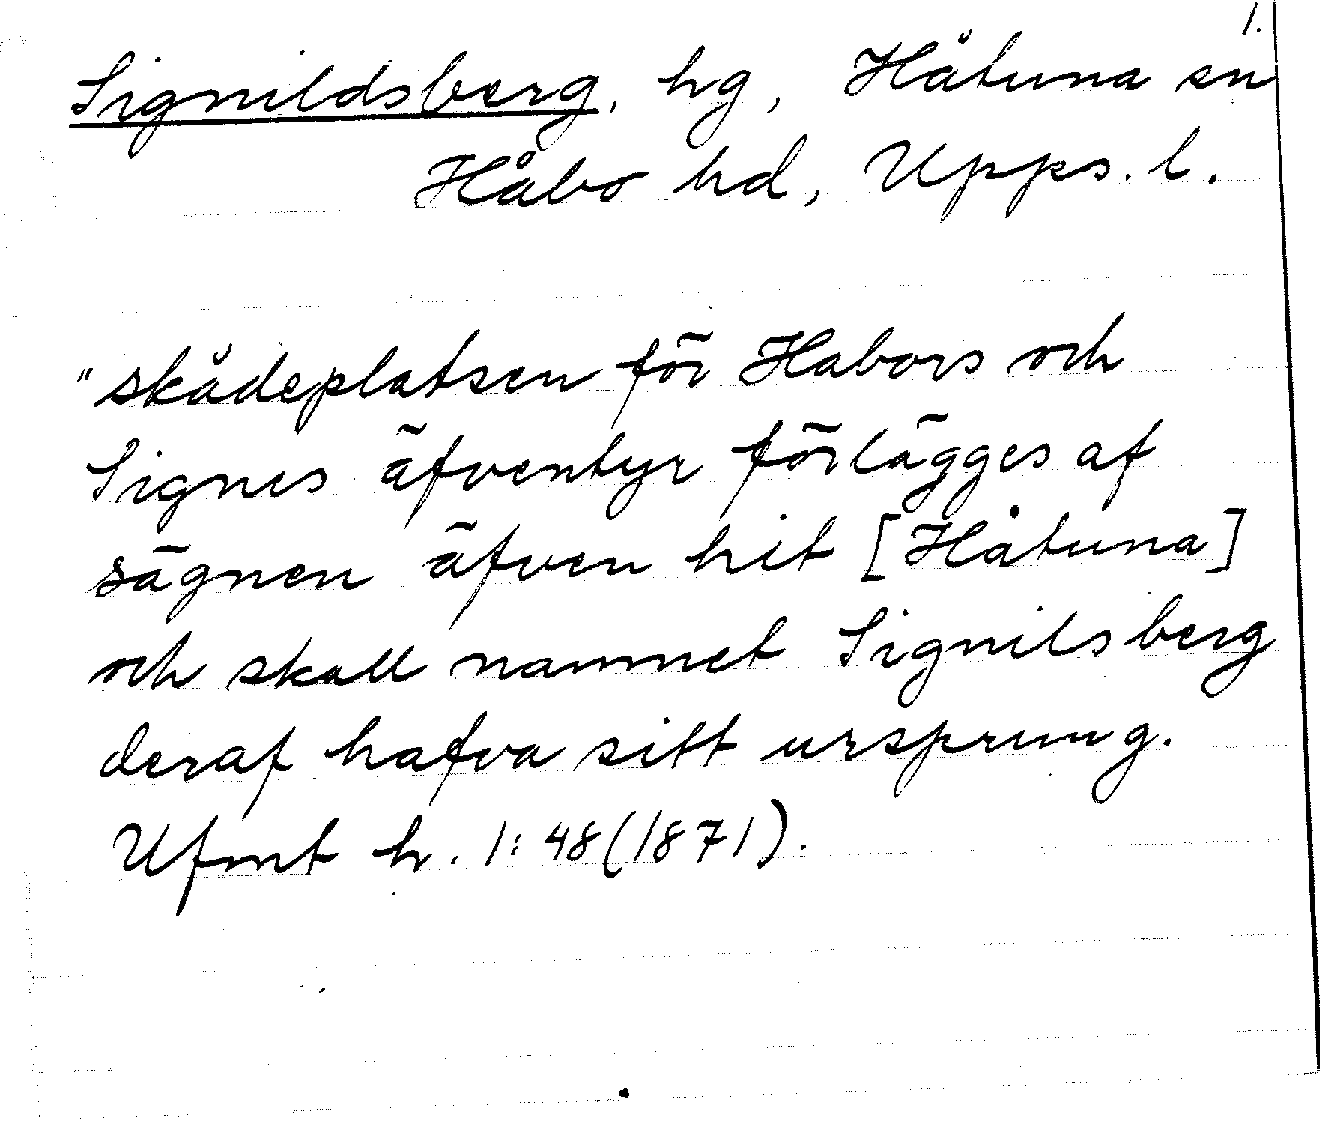 1.
Signildsberg, hg, Håtuna sn
Håbo hd, Upps. l.
"skådeplatsen för Habors och
Signes äfventyr förlägges af
sägnen äfven hit [Håtuna]
och skall namnet Signilsberg
deraf hafva sitt ursprung.
Ufmt h. 1:48(1871).